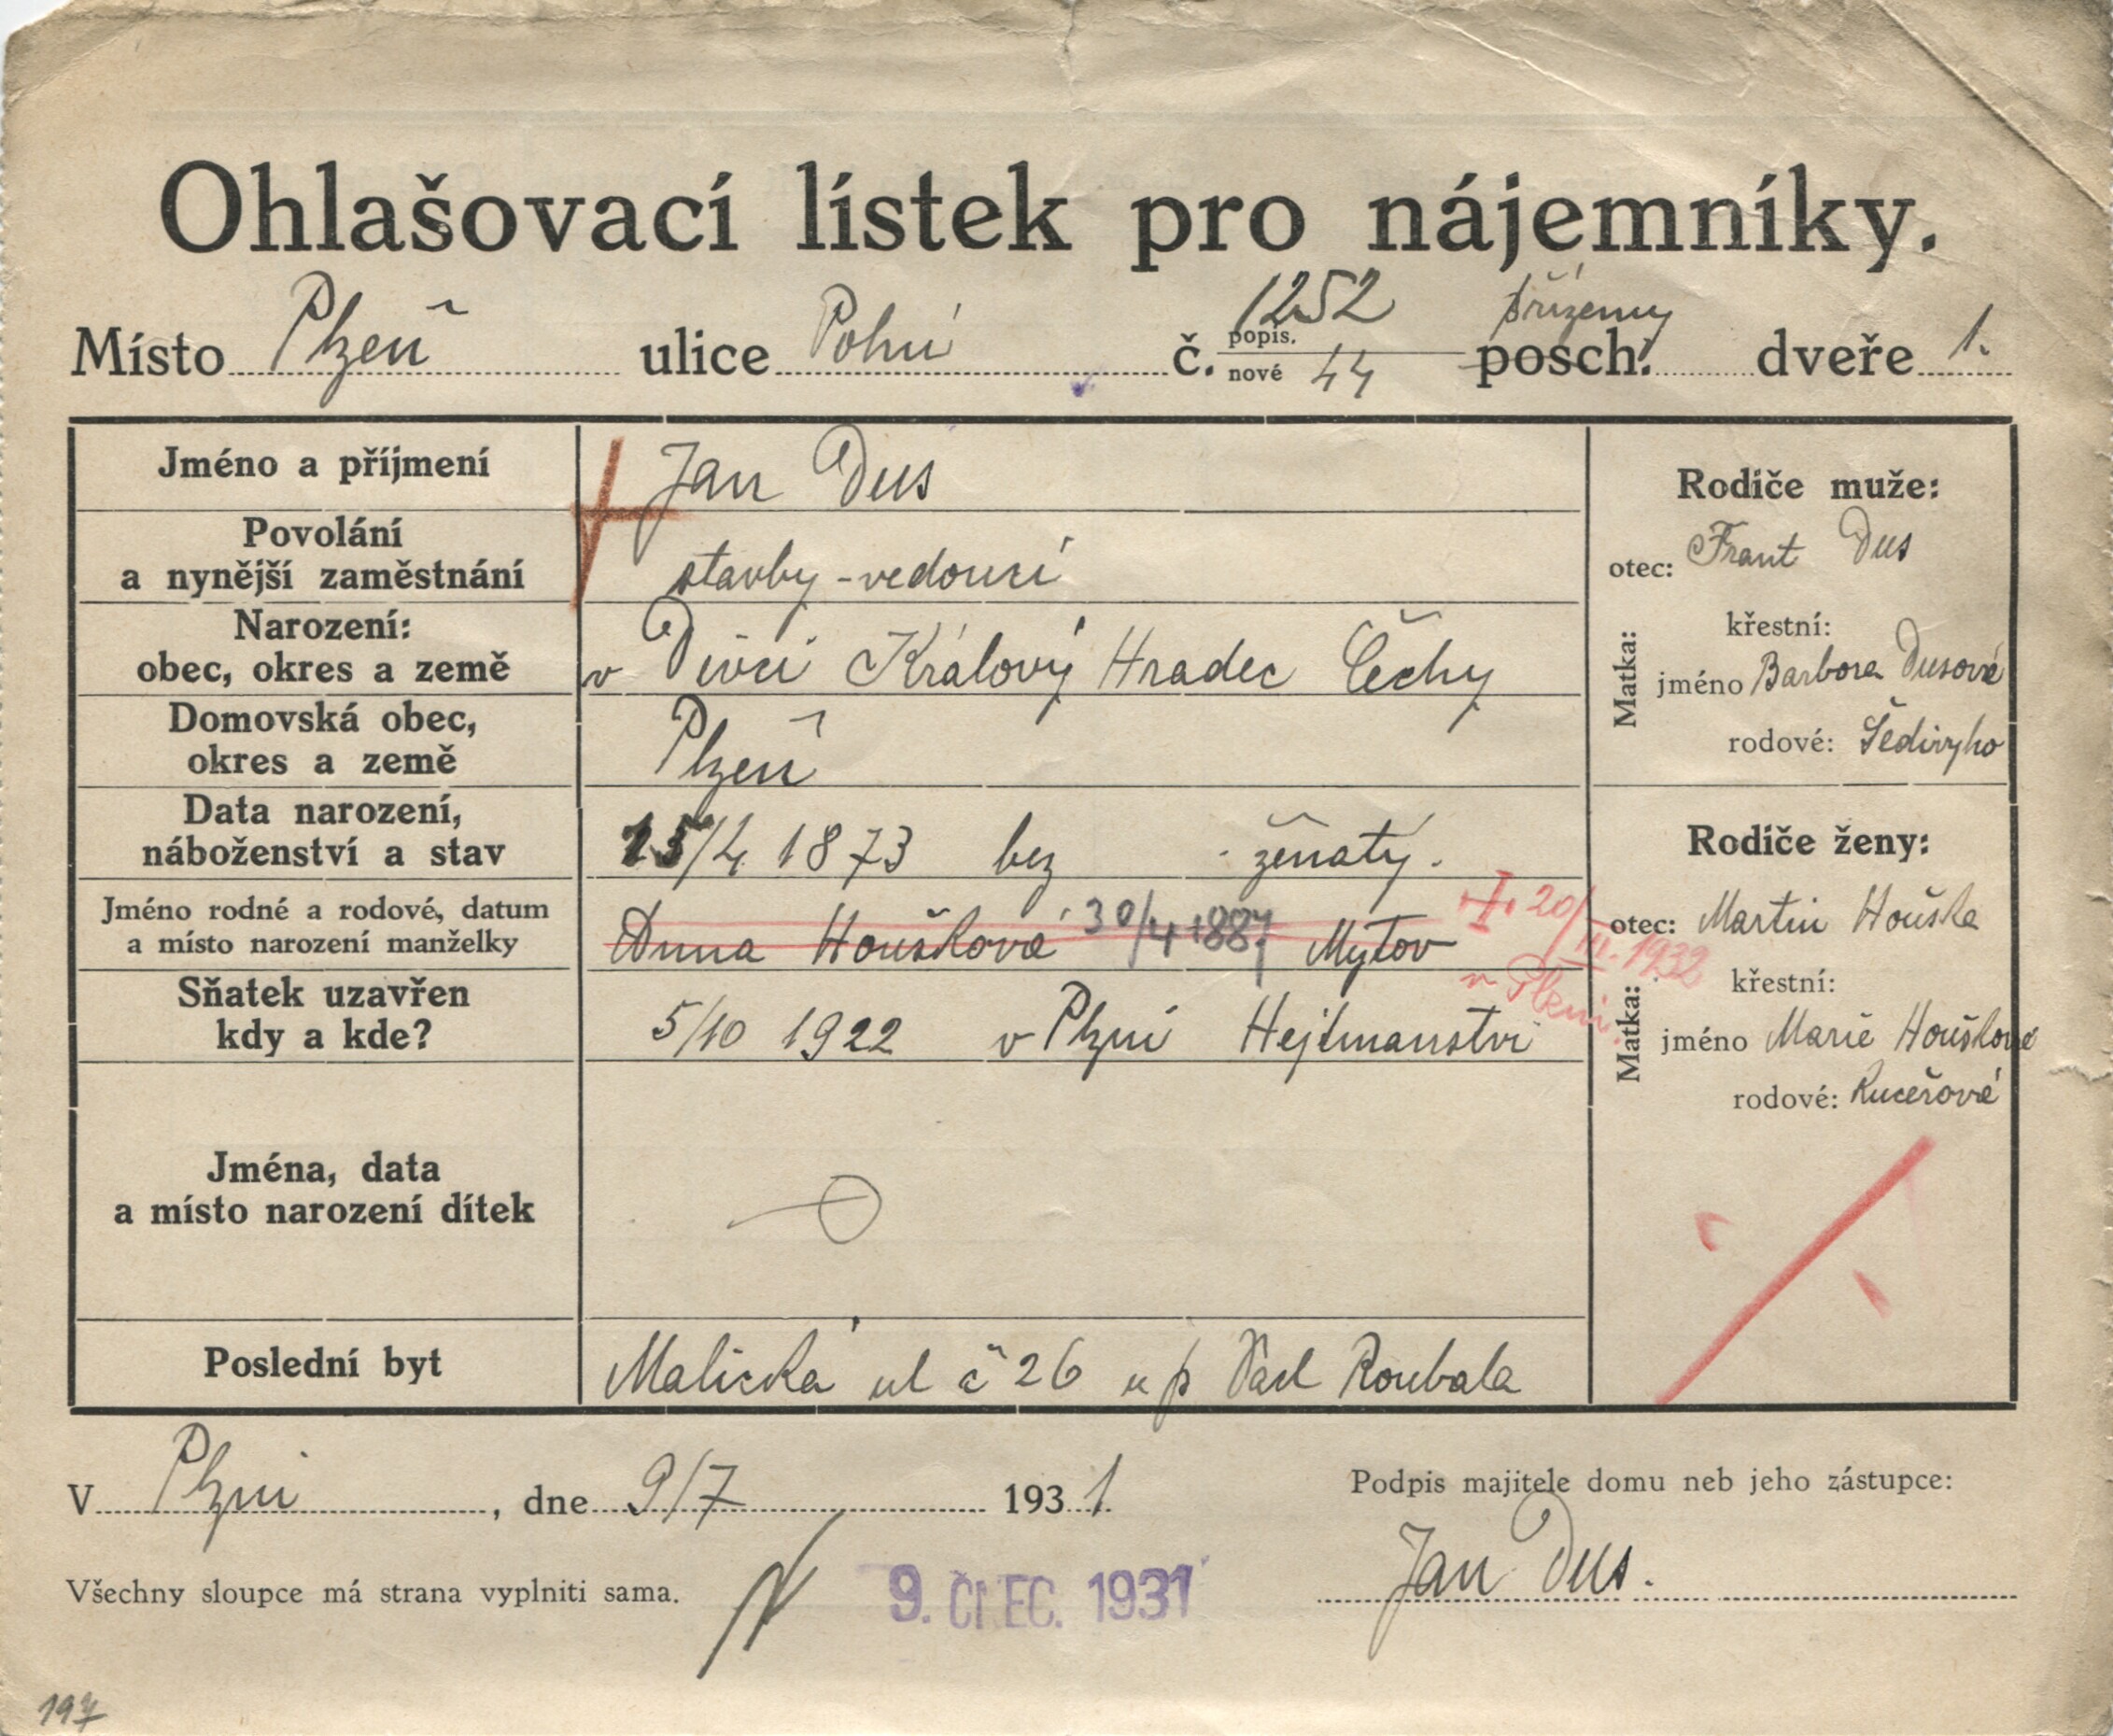 Ohlašovací lístek pro nájemníky.
Místo Plzeň ulice Polní č. popis. 1252 nové 44 posch. přízemy dveře 1.
Jméno a příjmení Jan Dus
Povolání
a nynější zaměstnání stavby-vedoucí
Narození:
obec, okres a země v Divci Králový Hradec Čechy
Domovská obec,
okres a země Plzeň
Data narození,
náboženství a stav 15/4 1873 bez ženatý.
Jméno rodné a rodové, datum
a místo narození manželky Anna Houšková 30/4 1887 Mýtov
20/III. 1932
v Plzni.
Sňatek uzavřen
kdy a kde? 5/10 1922 v Plzni Hejtmanství
Jména, data
a místo narození dítek
Poslední byt Malická ul č 26 u p Roubala
Rodiče muže:
otec: Frant Dus
Matka:
křestní:
jméno Barbora Dusová
rodové: Šedivyho
Rodiče ženy:
otec: Martin Houška
Matka:
křestní:
jméno Marie Houšková
rodové: Kučeřové
V Plzni, dne 9/7 1931.
Podpis majitele domu neb jeho zástupce:
Jan Dus.
Všechny sloupce má strana vyplniti sama.
9. ČNEC. 1931
197